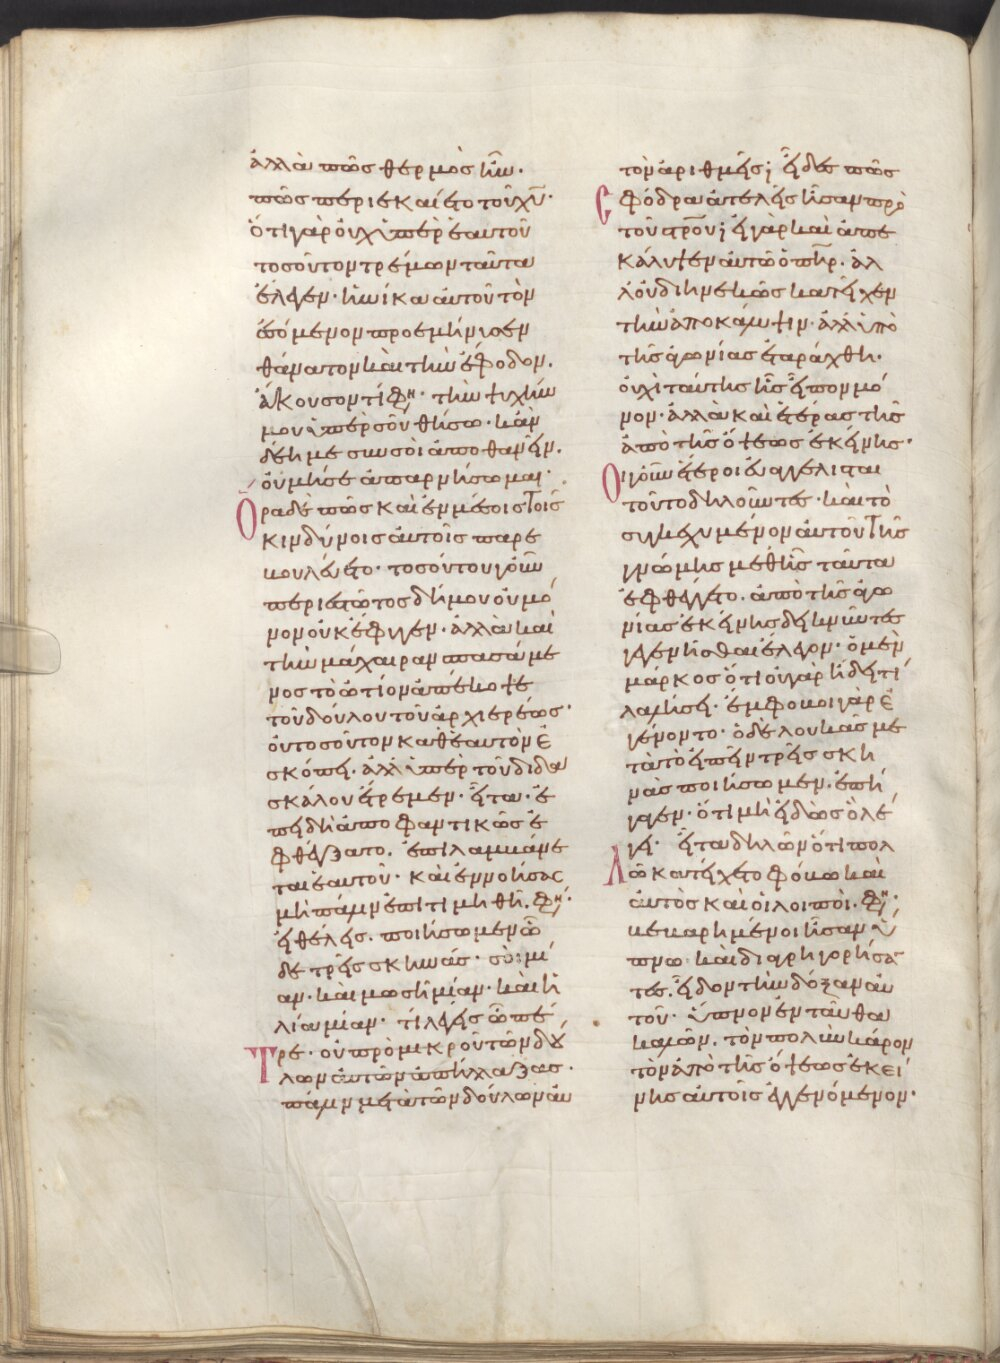 ἀλλὰ πῶς θερμὸς ἦν·
πῶς περιεκαίετο τοῦ χυ·
ὅτι γὰρ οὐχ ὑπὲρ ἑαυτοῦ
τοσοῦτον τρέμων ταῦτα
ἔλεγεν· ἡνίκα αὐτοῦ τὸν
ἐσόμενον προεμήνυσεν
θάνατον καὶ τὴν ἔφοδον.
ἄκουσον τί φη· τὴν ψυχήν
μου ὑπὲρ σοῦ θήσω· κἂν
δέη με συν σοὶ ἀποθανεῖν.
οὐ μή σε ἀπαρνήσομαι·
Ὅρα δὲ πῶς καὶ ἐν μέσοις τοῖς
κινδύνοις αὐτοῖς παρε
βουλεύετο· τοσούτου γοῦν
περιεστῶτος δήμου οὐ μό
νον οὐκ ἔφυγεν· ἀλλὰ καὶ
τὴν μάχαιραν σπασάμε
νος τὸ ὠτίον ἀπέκοψε
τοῦ δούλου τοῦ ἀρχιερέως·
οὐ τοσοῦτον καθ ἑαυτὸν ἐ
σκόπει. ἀλλ ὑπὲρ τοῦ διδα
σκάλου ἔτρεμεν· εἶτα· ἐ
πειδὴ ἀποφαντικῶς ἐ
φθέγξατο. ἐπιλαμβάνε
ται ἑαυτοῦ· καὶ ἐννοήσας
μὴ πάλιν ἐπιτιμηθῆ. φη·
εἰ θέλεις. ποιήσωμεν ὧ
δε τρεῖς σκηνάς· σοὶ μί
αν· καὶ μωσῆ μίαν· καὶ ἡ
λία μίαν· τί λέγεις ὦ πέ
Τρε· οὐ πρὸ μικροῦ τῶν δού
λων αὐτὸν ἀπήλλαξας·
πάλιν μετὰ τῶν δούλων αὐ
τὸν ἀριθμεῖς; εἶδες πῶς
Σφόδρα ἀτελεῖς ἦσαν πρὸ
τοῦ στρου; εἰ γὰρ καὶ ἀπε
κάλυψεν αὐτῶ ὁ πηρ. ἀλ
λ οὐ διηνεκῶς κατεῖχεν
τὴν ἀποκάλυψιν· ἀλλ ὑπὸ
τῆς ἀγωνίας ἐταράχθη·
οὐχὶ ταύτης ἧς εἶπον μό
νον· ἀλλὰ καὶ ἑτέρας τῆς
ἀπὸ τῆς ὄψεως ἐκείνης·
Οἱ γοῦν ἕτεροι εὐαγγελισταὶ
τοῦτο δηλοῦντες· καὶ τὸ
συγκεχυμένον αὐτοῦ τῆς
γνώμης μεθ ἧς ταῦτα
ἐφθέγγετο. ἀπὸ τῆς ἀγω
νίας ἐκείνης δεικνῦντες
γεγενῆσθαι ἔλεγον· ὁ μὲν
μάρκος ὅτι οὐ γὰρ ἤδει τί
λαλήσει· ἔμφοβοι γὰρ ἐ
γένοντο· ὁ δὲ λουκᾶς με
τὰ τὸ εἰπεῖν τρεῖς σκη
νὰς ποιήσωμεν· ἐπή
γαγεν· ὅτι μὴ εἰδὼς ὃ λέ
γει· εἶτα δηλῶν ὅτι πολ
Λῶ κατείχετο φόβω καὶ
αὐτὸς καὶ οἱ λοιποί· φη·
βεβαρημένοι ἦσαν ὕ
πνω· καὶ διαγρηγορήσαν
τες. εἶδον τὴν δόξαν αὐ
τοῦ· ὕπνον ἐνταῦθα
καλῶν. τὸν πολὺν κάρον
τὸν ἀπὸ τῆς ὄψεως ἐκεί
νης αὐτοῖς ἐγγενόμενον·